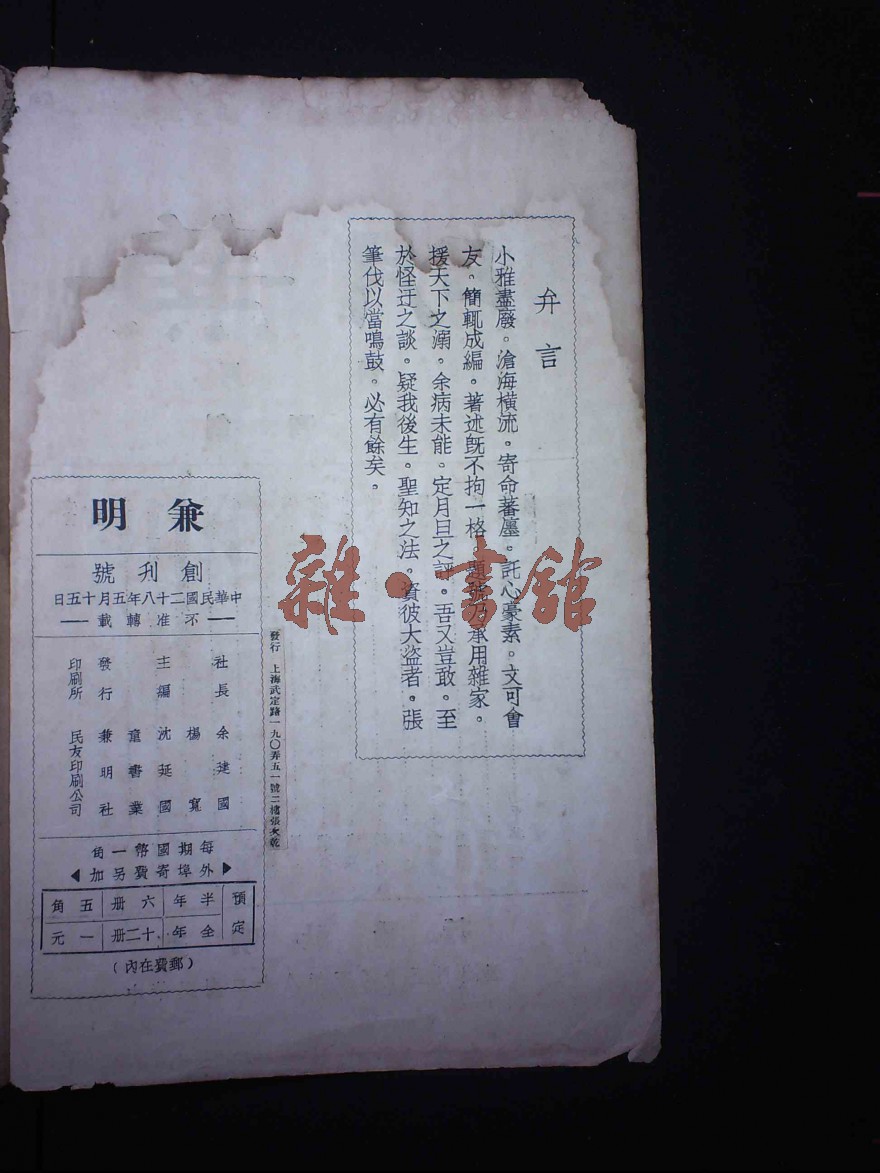 弁言
小雅盡廢。滄海橫流。寄命蕃廛。託心豪素。文可會
友。簡輒成編。著述既不拘一格。題號乃承用雜家。
援天下之溺。余病未能。定月旦之評。吾又豈敢。至
於怪迂之談。疑我後生。聖知之法。資彼大盜者。張
筆伐以當鳴鼓。必有餘矣。
發行 上海武定路一九〇弄五一號二樓張乾
兼明
創刊號
中華民國二十八年五月十五日
不准轉載
社長 余建國
主編 楊寬
沈延國
童書業
發行 兼明社
印刷所 民友印刷公司
每期國幣一角
外埠寄費另加
預定
半年 六冊 五角
全年 十二冊 一元
(郵費在內)
雜·書館